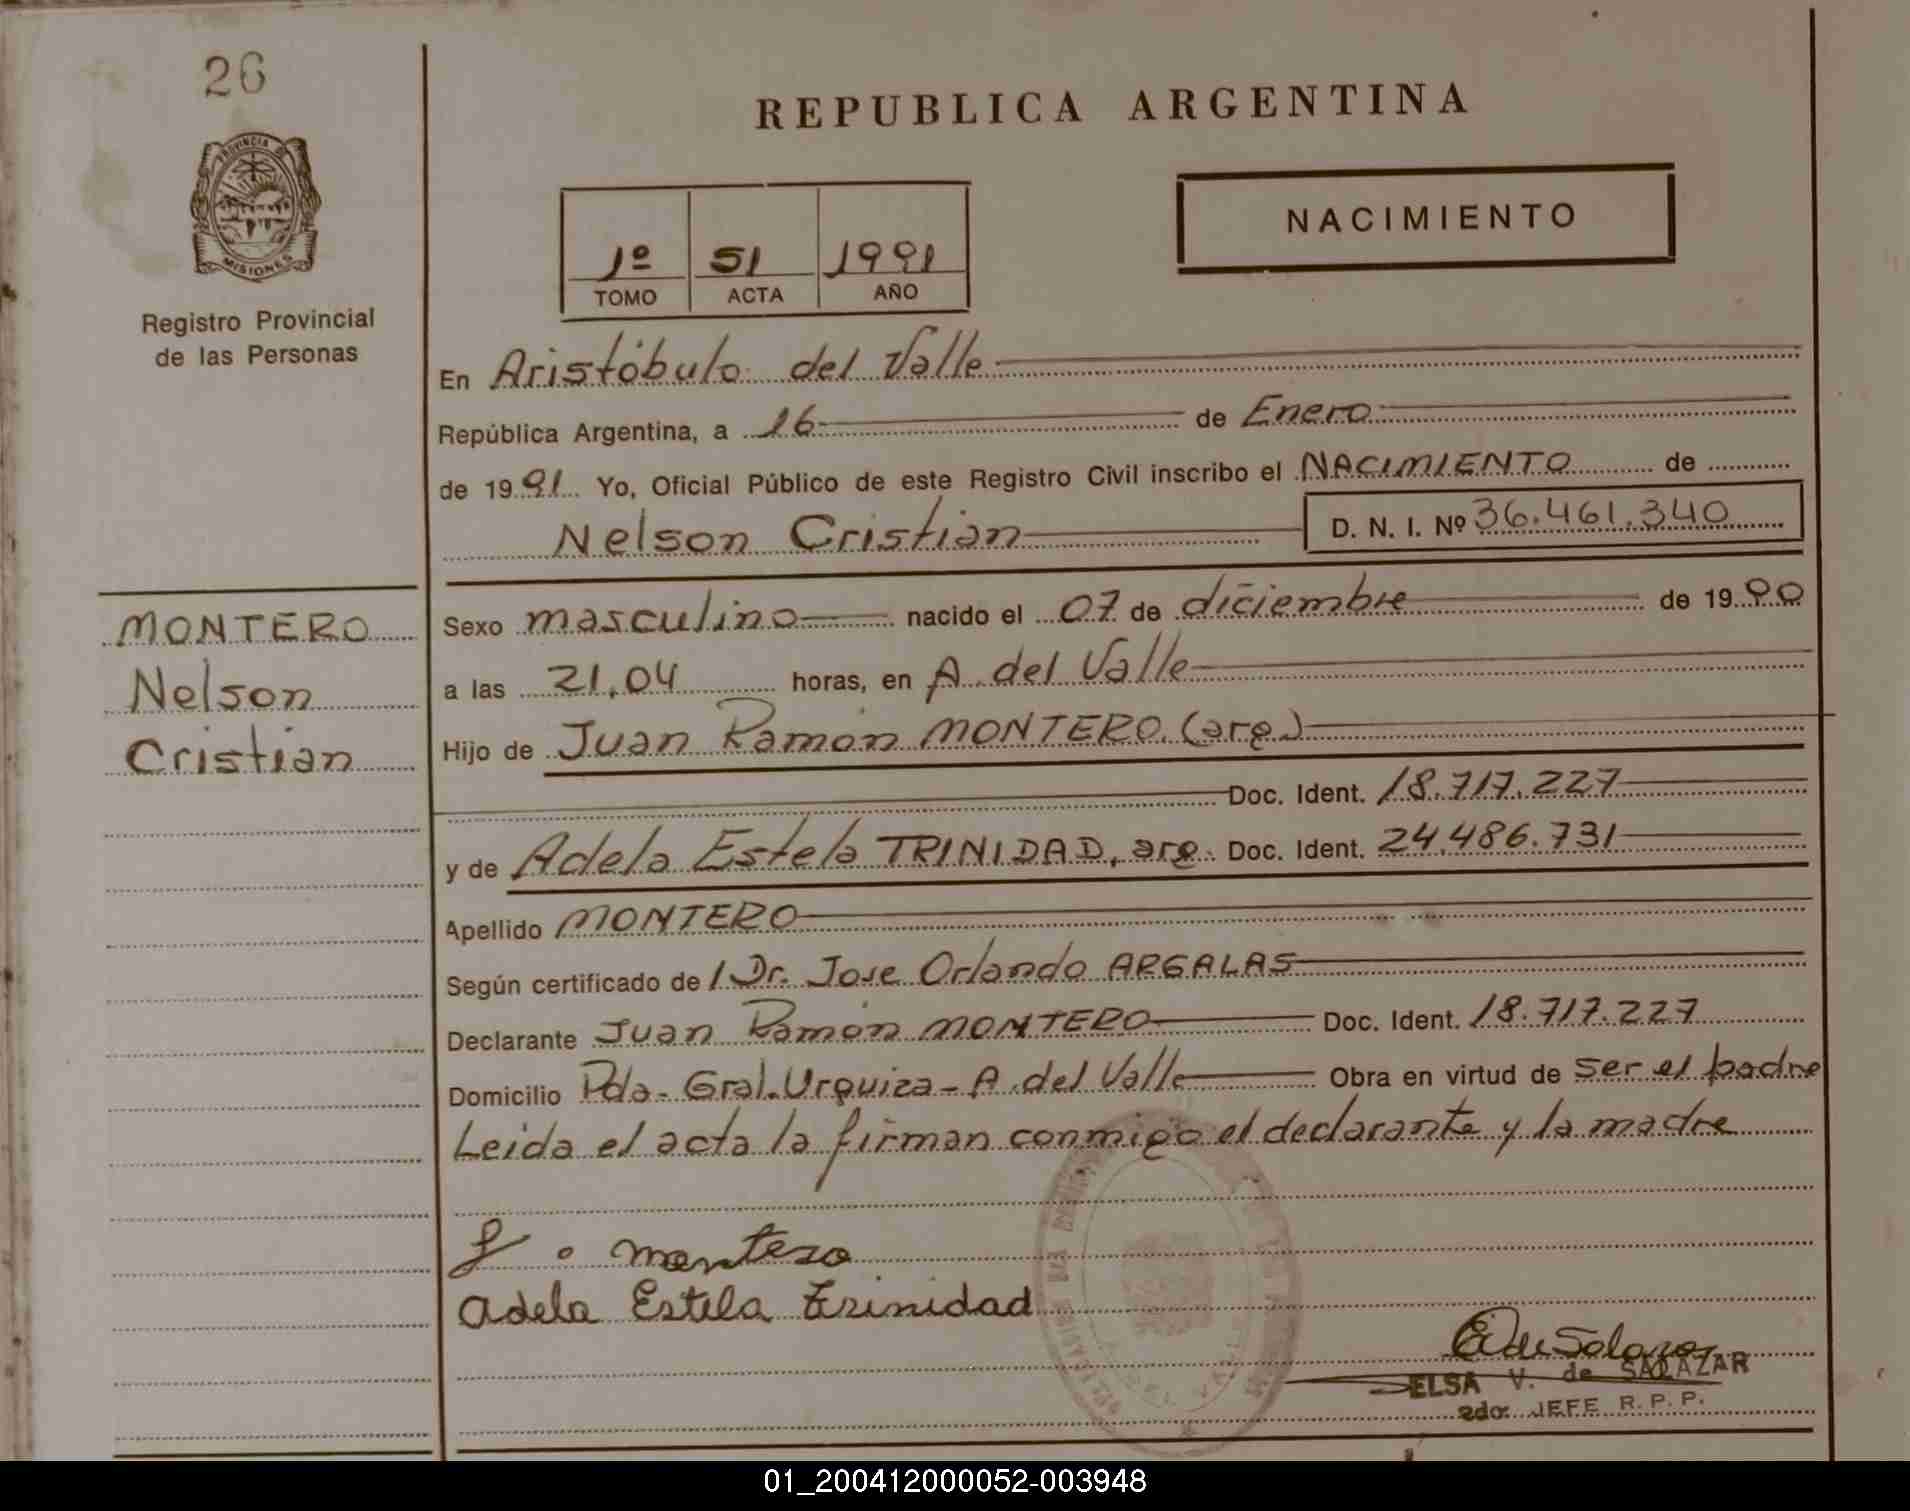 26
REPUBLICA ARGENTINA
PROVINCIA DE
MISIONES
Registro Provincial
de las Personas
1º 51 1991
TOMO ACTA AÑO
NACIMIENTO
En Aristóbulo del Valle
República Argentina, a 16 de Enero
de 1991 Yo, Oficial Público de este Registro Civil inscribo el NACIMIENTO de
Nelson Cristian D. N. I. Nº 36.461.340
MONTERO
Nelson
Cristian
Sexo masculino nacido el 07 de diciembre de 1990
a las 21,04 horas, en A. del Valle
Hijo de Juan Ramón MONTERO (arg.)
Doc. Ident. 18.717.227
y de Adela Estela TRINIDAD, arg. Doc. Ident. 24.486.731
Apellido MONTERO
Según certificado de / Dr. Jose Orlando ARGALAS
Declarante Juan Ramón MONTERO Doc. Ident. 18.717.227
Domicilio Pda. Gral. Urquiza - A. del Valle Obra en virtud de ser el padre
Leida el acta la firman conmigo el declarante y la madre
montero
Adela Estela Trinidad
E. de Salazar
ELSA V. de SALAZAR
2do. JEFE R. P. P.
01_200412000052-003948